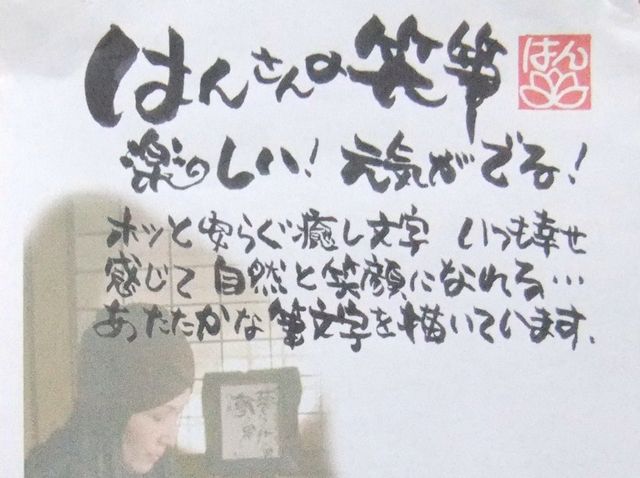 はんさんの笑筆
はん
楽しい！元気がでる！
ホッと安らぐ癒し文字 いつも幸せ
感じて自然と笑顔になれる…
あったたかな筆文字を描いています.